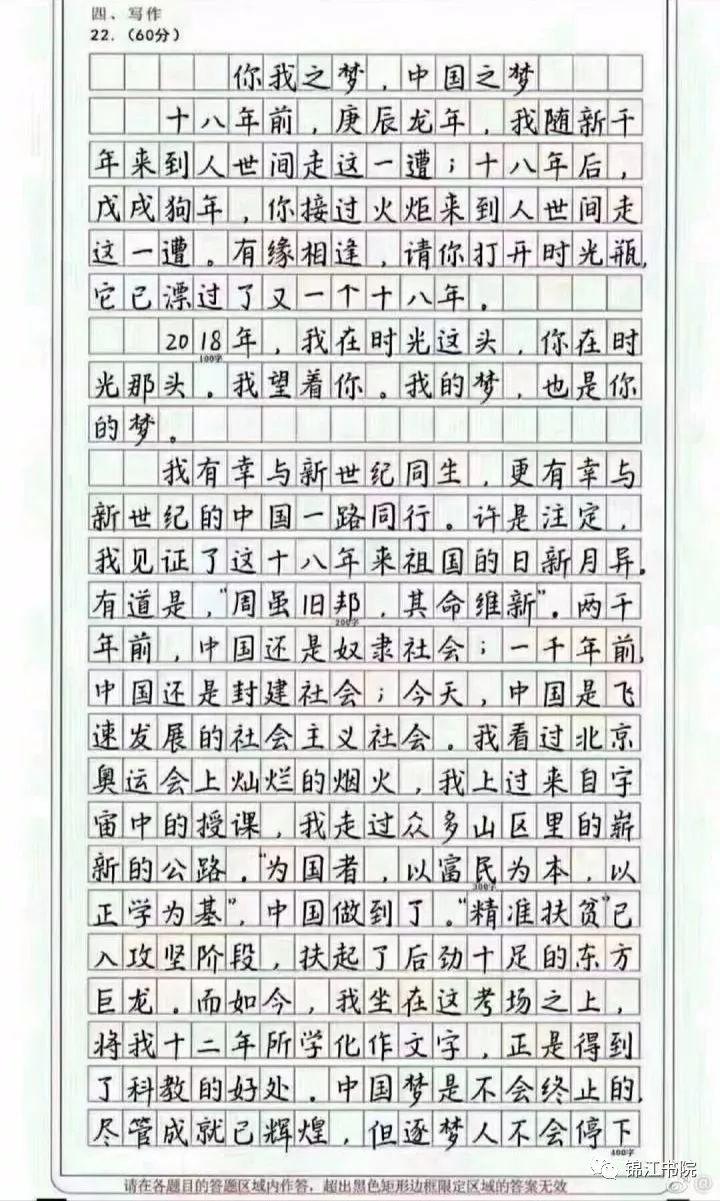 四、写作
22.（60分）
你我之梦，中国之梦
十八年前，庚辰龙年，我随新千
年来到人世间走这一遭；十八年后，
戊戌狗年，你接过火炬来到人世间走
这一遭。有缘相逢，请你打开时光瓶，
它已漂过了又一个十八年。
2018年，我在时光这头，你在时
100字
光那头。我望着你。我的梦，也是你
的梦。
我有幸与新世纪同生，更有幸与
新世纪的中国一路同行。许是注定，
我见证了这十八年来祖国的日新月异。
有道是，“周虽旧邦，其命维新”。两千
200字
年前，中国还是奴隶社会；一千年前，
中国还是封建社会；今天，中国是飞
速发展的社会主义社会。我看过北京
奥运会上灿烂的烟火，我上过来自宇
宙中的授课，我走过众多山区里的崭
新的公路。“为国者，以富民为本，以
300字
正学为基”，中国做到了。“精准扶贫”已
入攻坚阶段，扶起了后劲十足的东方
巨龙。而如今，我坐在这考场之上，
将我十二年所学化作文字，正是得到
了科教的好处。中国梦是不会终止的，
尽管成就已辉煌，但逐梦人不会停下
400字
锦江书院
请在各题目的答题区域内作答，超出黑色矩形边框限定区域的答案无效